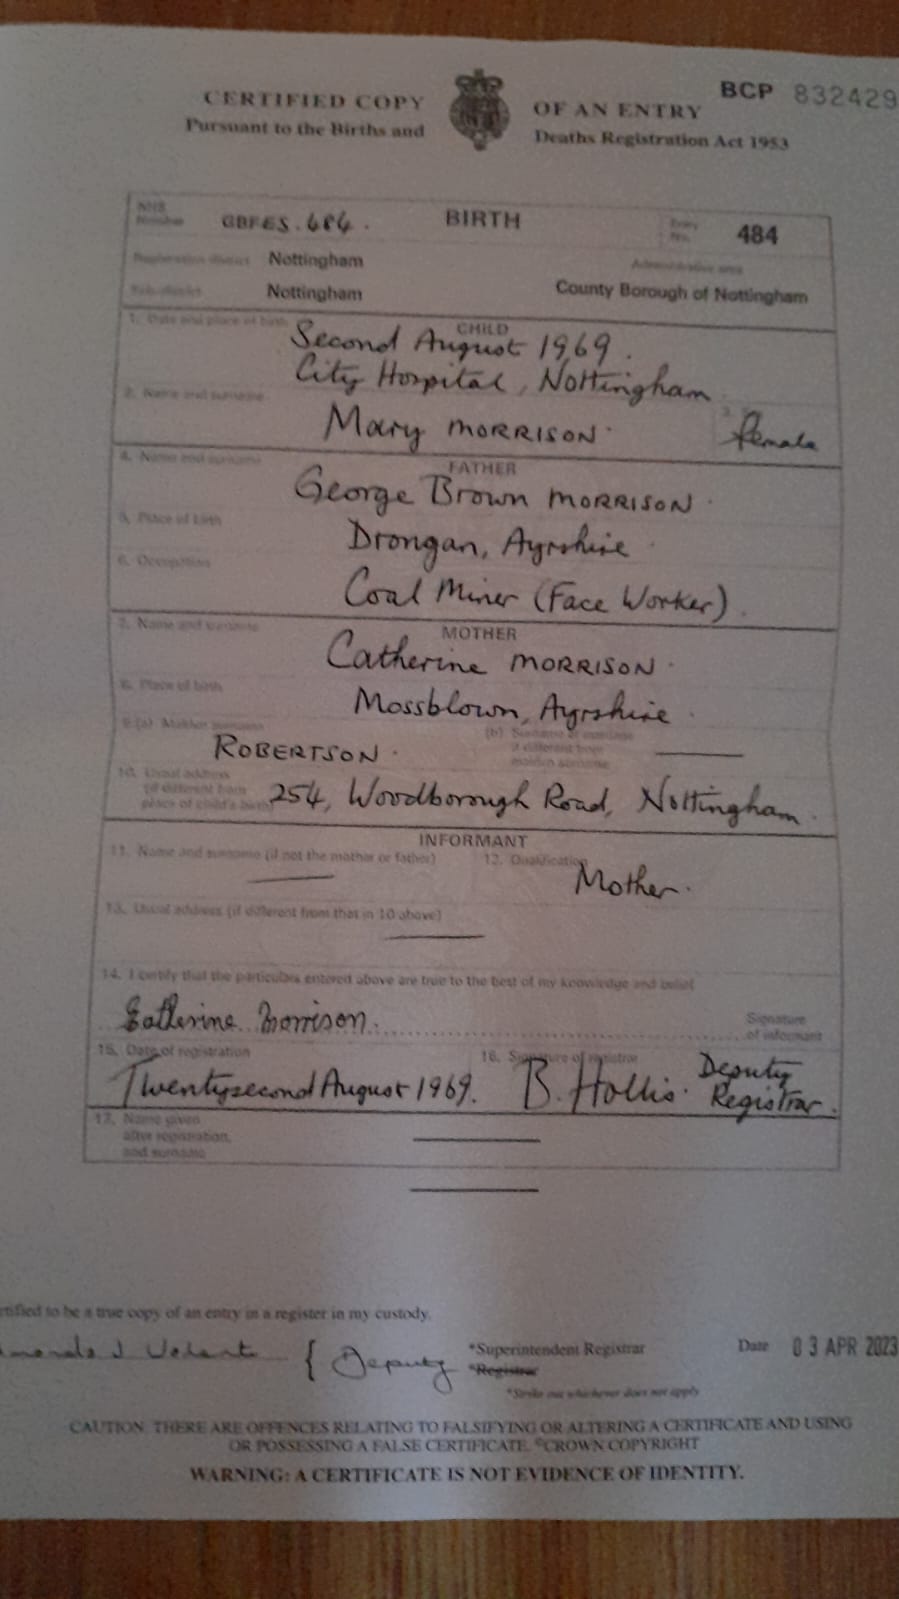 BCP 832429
CERTIFIED COPY OF AN ENTRY
Pursuant to the Births and Deaths Registration Act 1953
NHS Number GBFES.484. BIRTH Entry No. 484
Registration district Nottingham Administrative area
Sub-district Nottingham County Borough of Nottingham
1. Date and place of birth CHILD
Second August 1969.
City Hospital, Nottingham
2. Name and surname
Mary MORRISON Female
4. Name and surname FATHER
George Brown MORRISON
5. Place of birth Drongan, Ayrshire
6. Occupation Coal Miner (Face Worker)
7. Name and surname MOTHER
Catherine MORRISON
8. Place of birth Mossblown, Ayrshire
9.(a) Maiden surname ROBERTSON (b) Surname at marriage if different from maiden surname
10. Usual address (if different from place of child's birth) 254, Woodborough Road, Nottingham
INFORMANT
11. Name and surname (if not the mother or father) 12. Qualification
Mother.
13. Usual address (if different from that in 10 above)
14. I certify that the particulars entered above are true to the best of my knowledge and belief
Catherine Morrison Signature of informant
15. Date of registration 16. Signature of registrar
Twentysecond August 1969. B. Hollis Deputy Registrar.
17. Name given after registration, and surname
rtified to be a true copy of an entry in a register in my custody.
{ Deputy *Superintendent Registrar Date 03 APR 2023
*Registrar
*Strike out whichever does not apply
CAUTION: THERE ARE OFFENCES RELATING TO FALSIFYING OR ALTERING A CERTIFICATE AND USING
OR POSSESSING A FALSE CERTIFICATE. ©CROWN COPYRIGHT
WARNING: A CERTIFICATE IS NOT EVIDENCE OF IDENTITY.